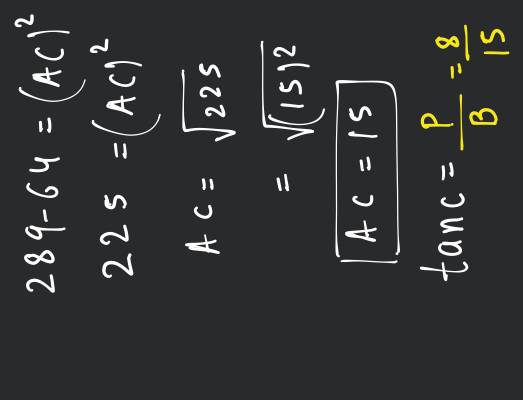 289-64 = (AC)²
225 = (AC)²
AC = √225
= √(15)²
AC = 15
tanc = P/B = 8/15